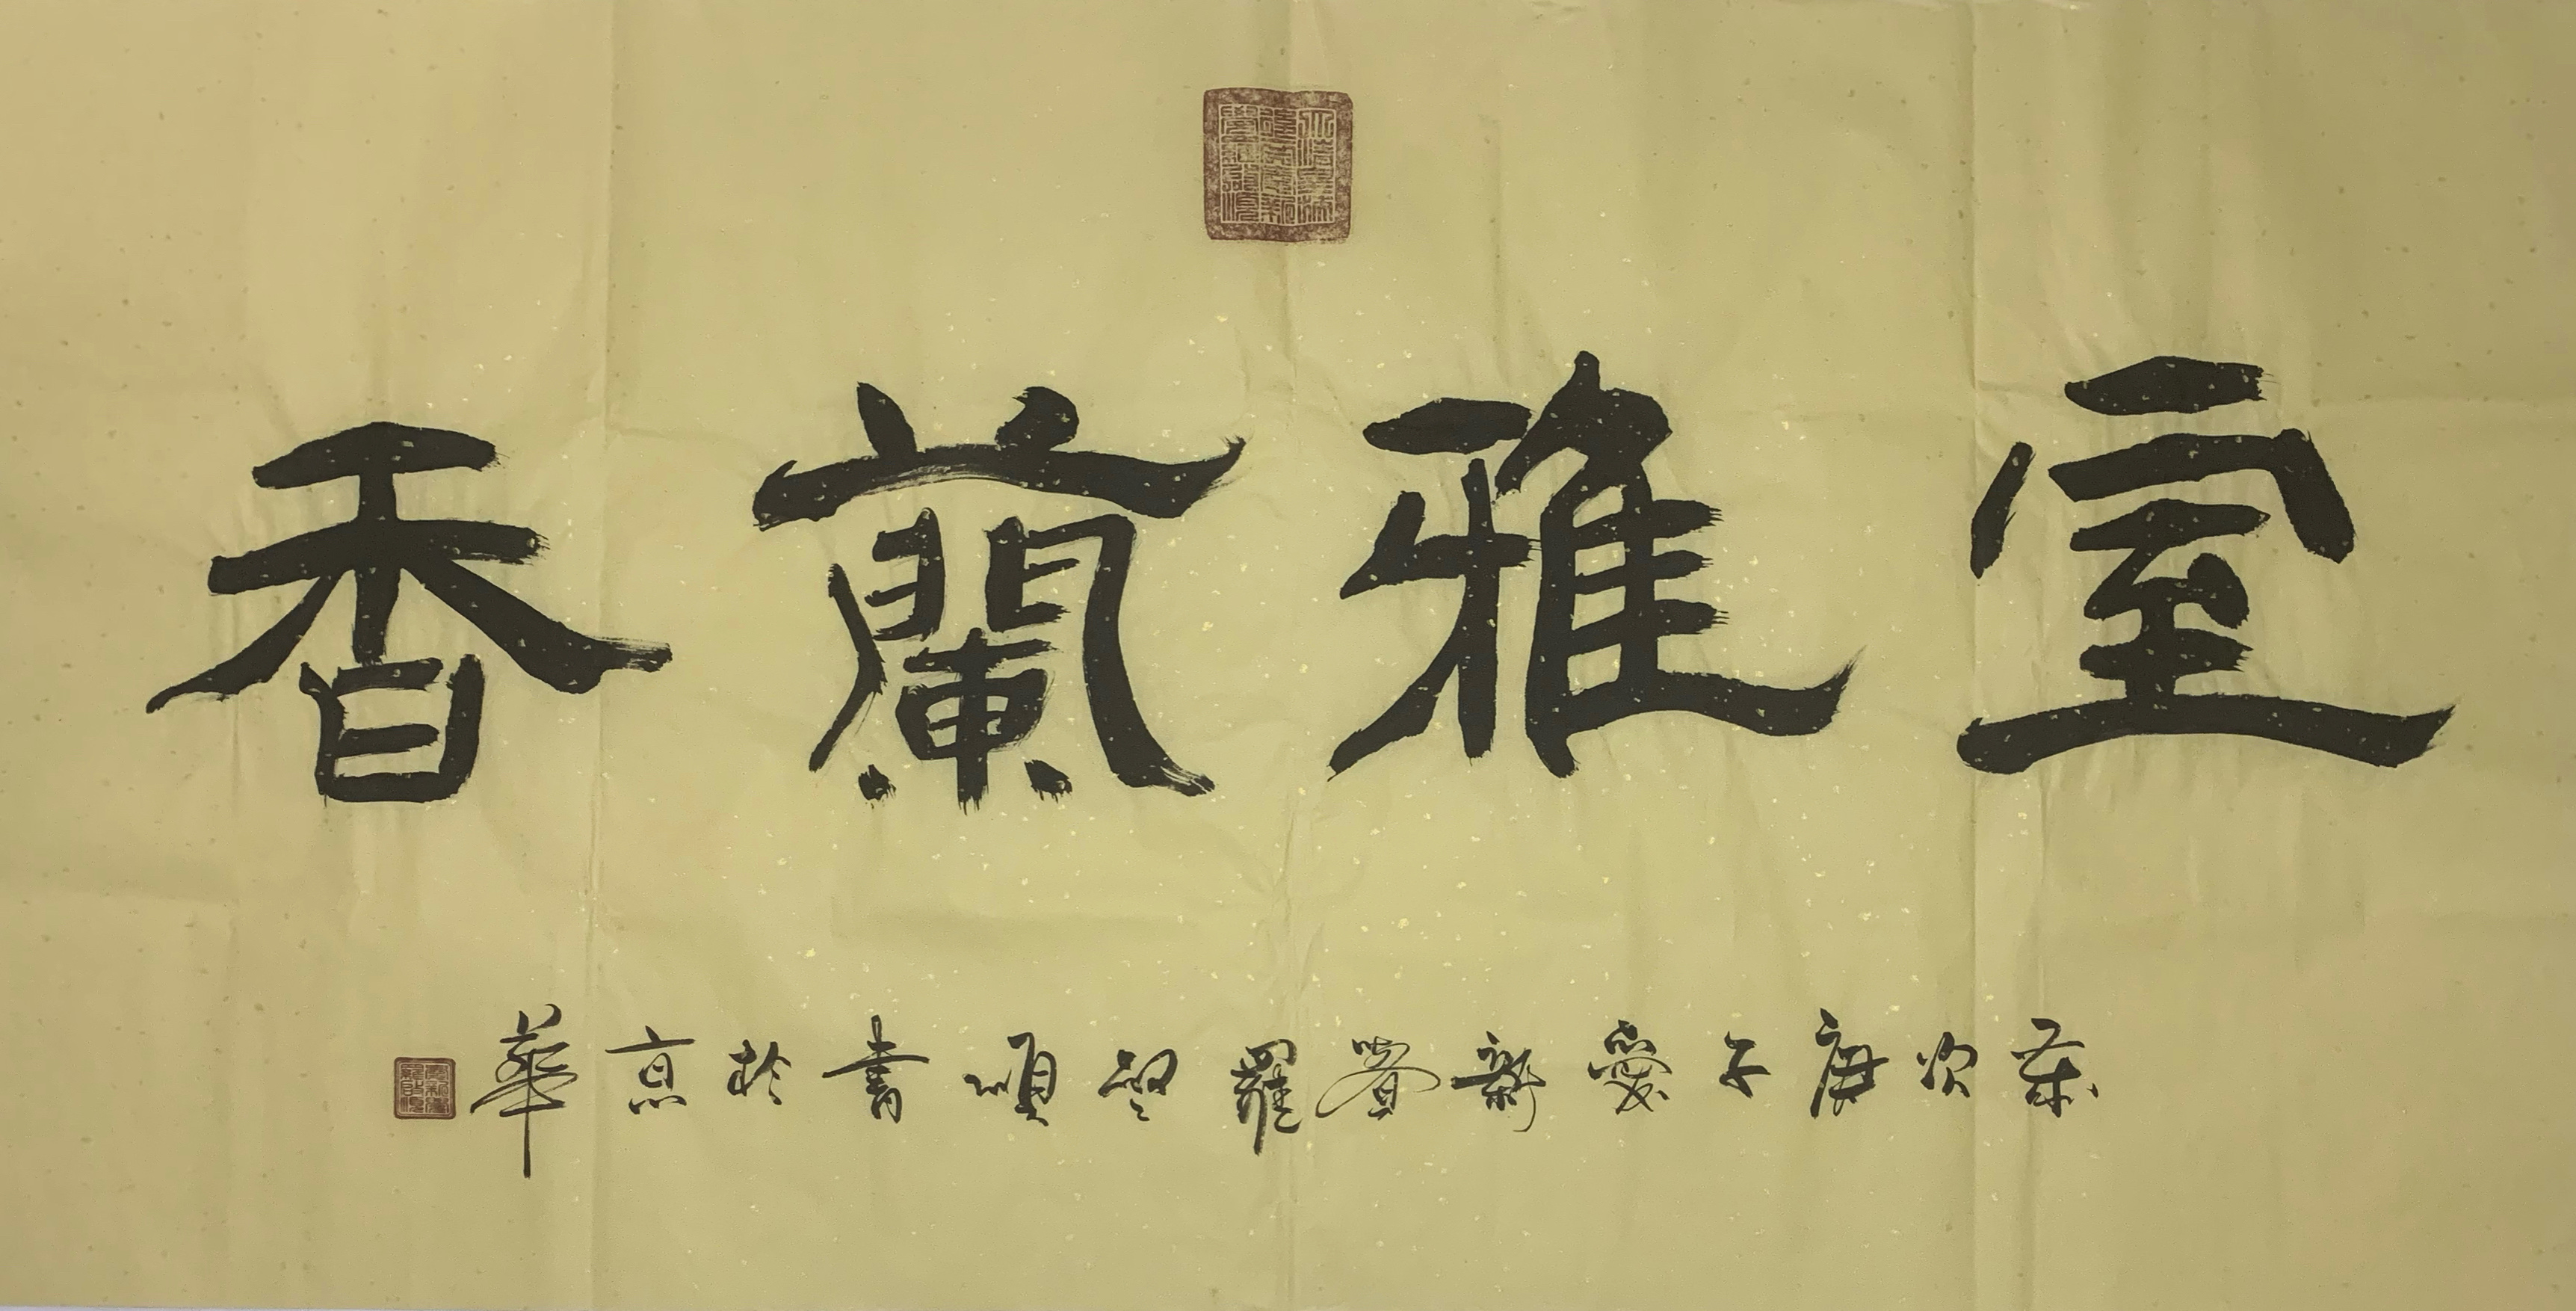 室雅蘭香
歲次庚子愛新覺羅啟順書於京華